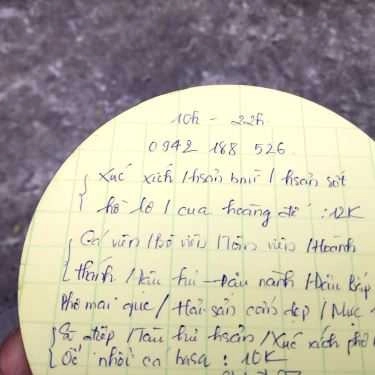 10h - 22h
0942 188 526
Xúc xích / hsản / hsản sốt
hồ lô / cua hoàng đế : 12K
Cá viên / Bò viên / Tôm viên / Hoành
thánh / Tàu hủ - Đậu nành / Đậu Bắp
Phô mai que / Hải sản cons dẹp / Mực
/ Tàu hủ hsản / Xúc xích phô
Ốc nhồi cá basa : 10K